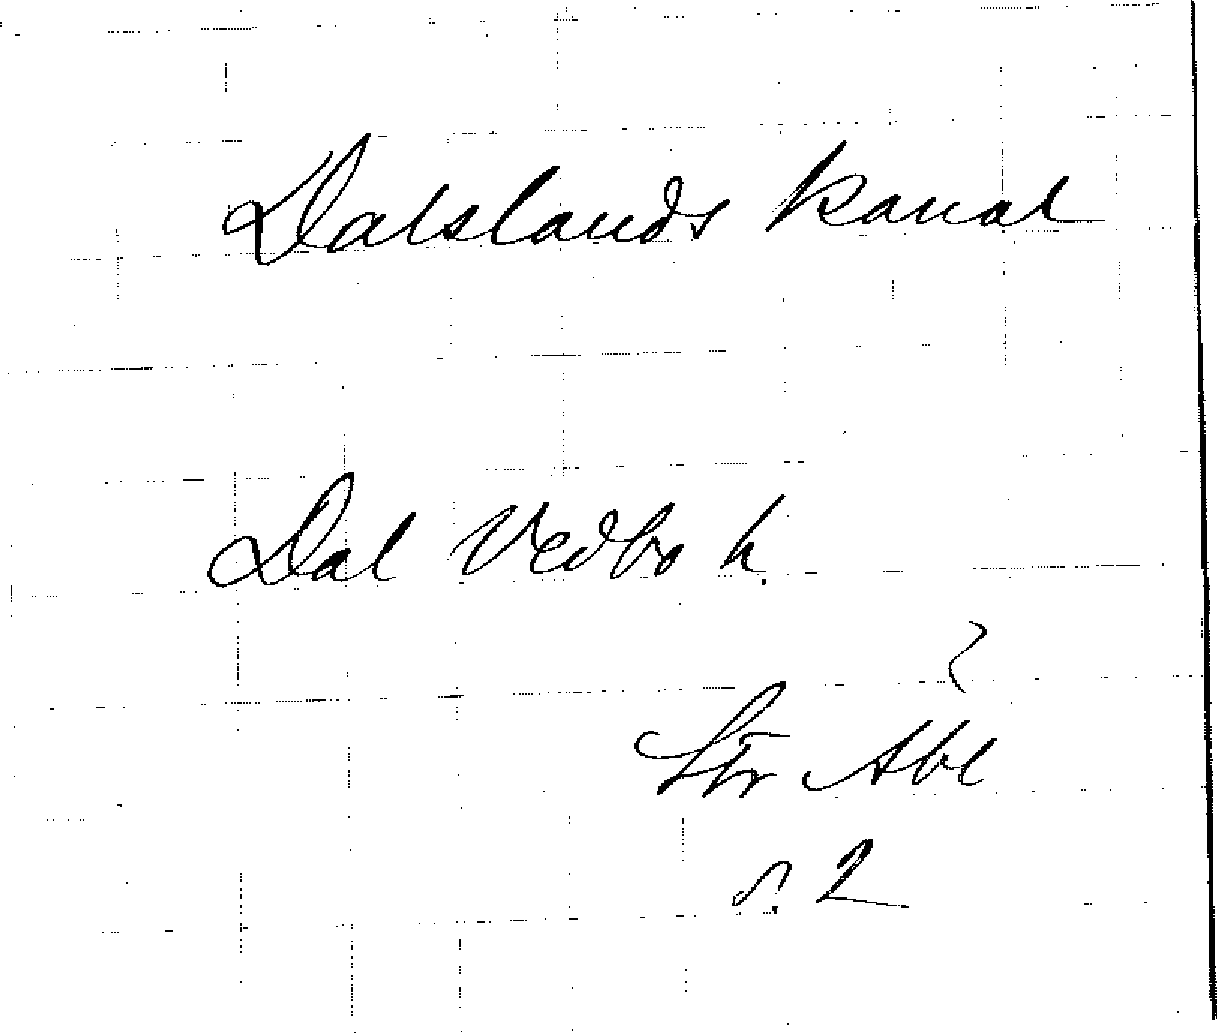 Dalslands kanal
Dal Vedbo h.
Str Åbl
s. 2